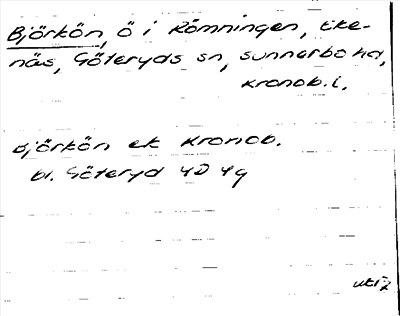 Björkön, ö i Römningen, Eke-
näs, Göteryds sn, Sunnerbo hd,
Kronob. l.
Björkön ek Kronob.
bl. Göteryd 4D 4g